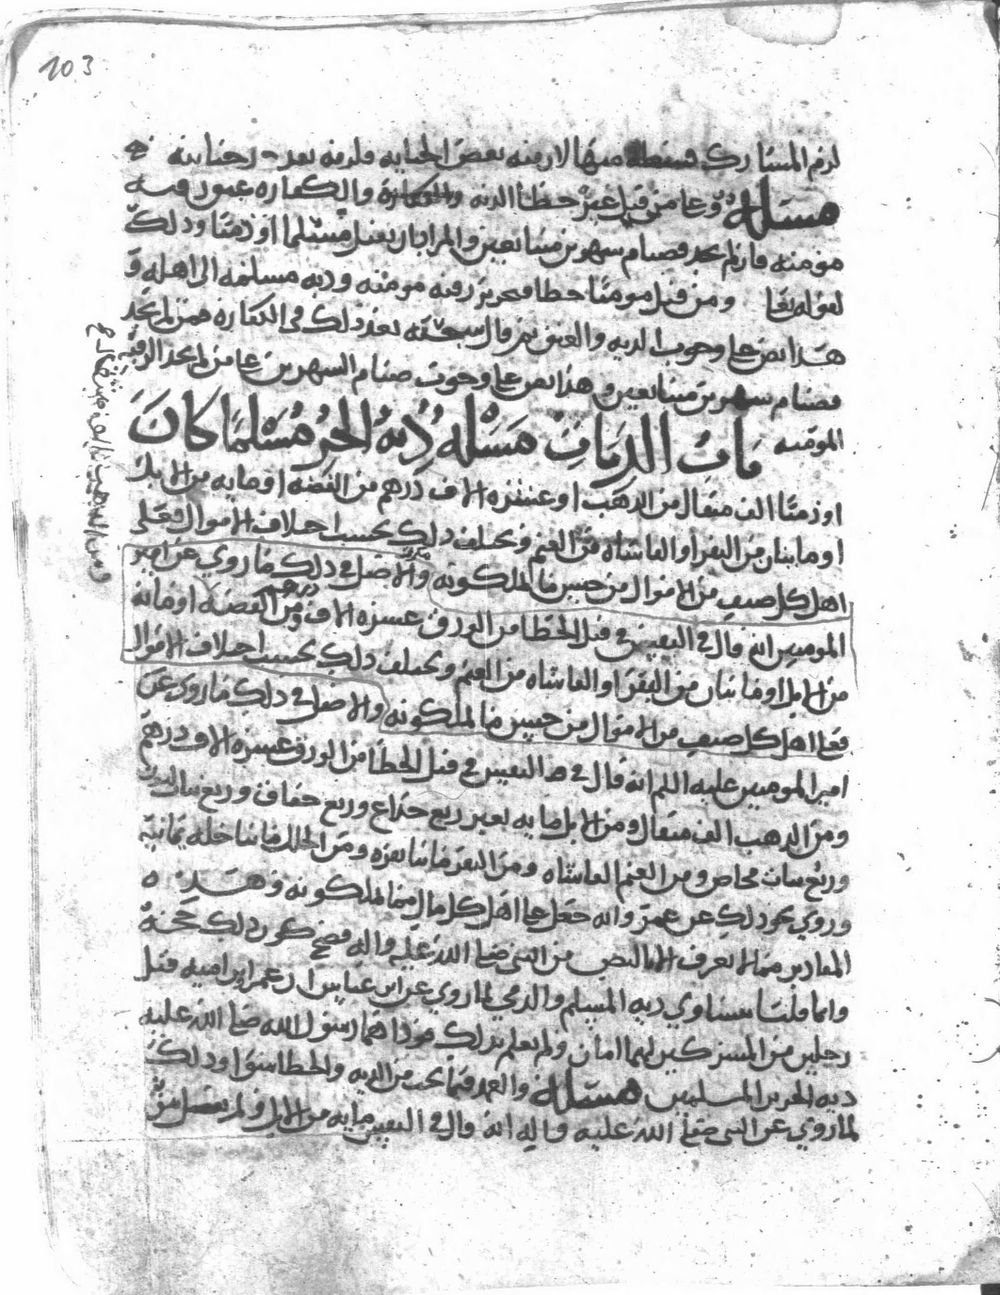 103
لزم المشارك قسطه منها لا رمته بعض الجنايه فلزمه بعد
مسئلة وعلى من قتل غيره خطأ الديه والكفارة والكفاره عتق رقبه
مؤمنه فان لم يجد فصيام شهرين متتابعين والمراد بان يقتل مسلما او ذميا وذلك
لقوله تعا ومن قتل مومنا خطا فتحرير رقبه مومنه وديه مسلمه الى اهله و
هذا نص على وجوب الديه والعتق ثم قال سبحنه بعد ذلك في الكفاره فمن لم يجد
فصيام شهرين متتابعين وهذا نص على وجوب صيام الشهرين على من لم يجد الرقبه
المومنه باب الديات مسئله ديه الحر مسلما كان
او ذميا الف مثقال من الذهب او عشره الاف درهم من الفضه او مايه من الابل
او مايتان من البقر او الفا شاه من الغنم ويختلف ذلك بحسب اختلاف الاموال فعلى
اهل كل صنف من الاموال من جنس ما يملكونه والاصل في ذلك ما روي عن امير
المومنين انه قال في النفس في قتل الخطا من الورق عشره الاف درهم ومن الفضه او مايه
من الابل او مايتان من البقر او الفا شاه من الغنم ويختلف ذلك بحسب اختلاف الاموال
فعلى اهل كل صنف من الاموال من جنس ما يملكونه والاصل في ذلك ما روي عن
امير المومنين عليه السلم انه قال في النفس في قتل الخطا من الورق عشره الاف درهم
ومن الذهب الف مثقال ومن الابل مايه بعير ربع جذاع وربع حقاق وربع بنات لبون
وربع بنات مخاض ومن الغنم الفا شاه ومن البقر مايتا بقره ومن الحلل مايتا حله يمانيه
وروي نحو ذلك عن عمر وانه جعل على اهل كل مال مما يملكونه وهذه
المقادير مما لا يعرف الا بالنص من النبي صلى الله عليه واله فصح كون ذلك حجه
وانما قلنا بتساوي ديه المسلم والذمي لما روي عن ابن عباس ان عمر ابن اميه قتل
رجلين من المشركين لهما امان ولم يعلم بذلك فوداهما رسول الله صلى الله عليه
ديه الحرين المسلمين مسئله والعمد فيما يجب من الديه والخطا سوا وذلك
لما روي عن النبي صلى الله عليه واله انه قال في النفس مايه من الابل ولم يفصل بين